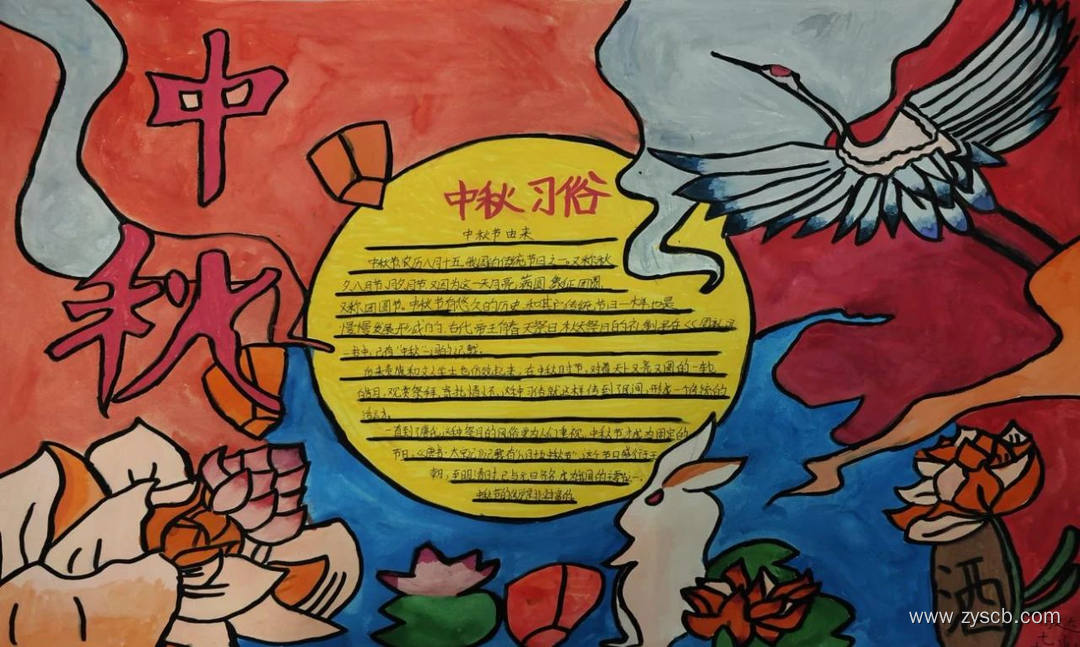 中秋
中秋习俗
中秋节由来
中秋节农历八月十五,我国的传统节日之一。又称秋
夕、八月节、月夕、月节,又因为这一天月亮满圆,象征团圆
又称团圆节。中秋节有悠久的历史,和其它传统节日一样,也是
慢慢发展形成的,古代帝王有春天祭日,秋天祭月的礼制,早在《周礼》
一书中,已有"中秋"一词的记载。
后来贵族和文人学士也仿效起来,在中秋时节,对着天上又亮又圆的一轮
皓月,观赏祭拜,寄托情怀,这种习俗就这样传到了民间,形成一个传统的
活动。
一直到了唐代,这种祭月的风俗更为人们重视,中秋节才成为固定的
节日,《唐书·太宗记》记载有"八月十五中秋节",这个节日盛行于
朝,至明清时,已与元旦齐名,成为我国的主要
中秋节的
酒
www.zyscb.com